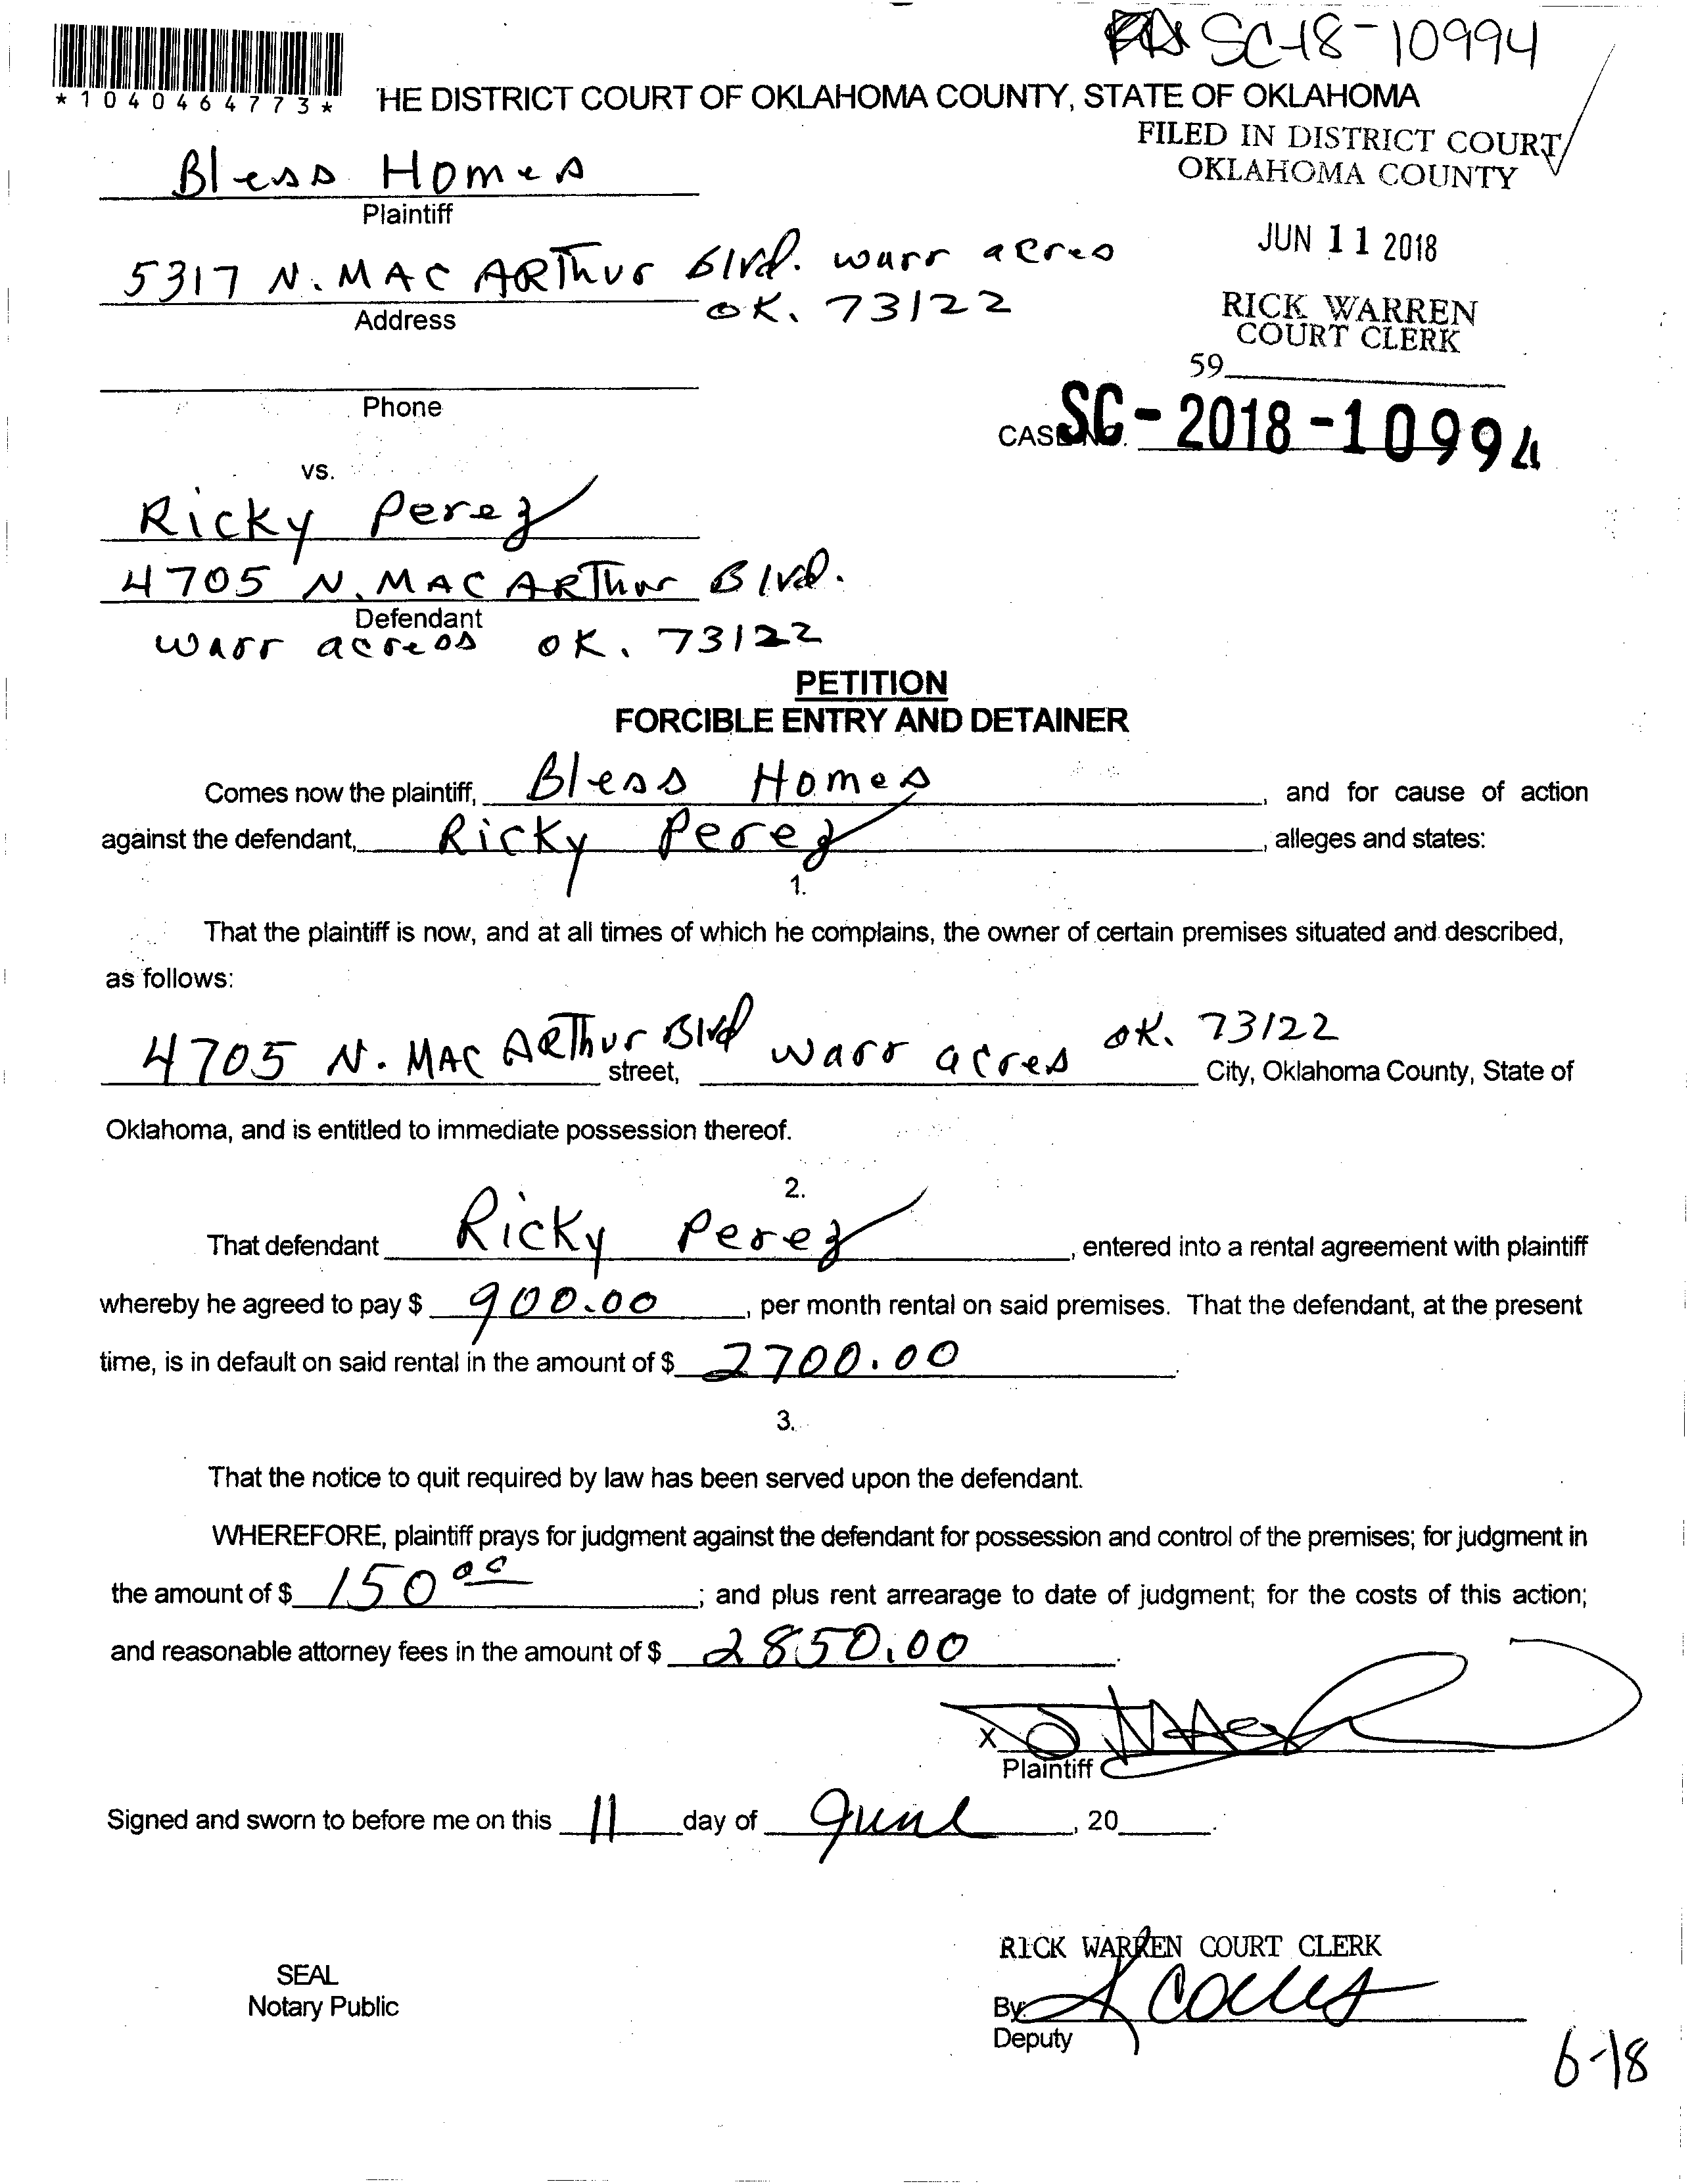 SC-18-10994
*1040464773*
HE DISTRICT COURT OF OKLAHOMA COUNTY, STATE OF OKLAHOMA
FILED IN DISTRICT COURT
OKLAHOMA COUNTY
Bless Homes
Plaintiff
JUN 11 2018
5317 N. MAC ARThur Blvd. warr acres
OK. 73122
Address
RICK WARREN
COURT CLERK
59
Phone
CASE NO. SC-2018-10994
vs.
Ricky Perez
4705 N. MAC ARThur Blvd.
Defendant
warr acreos OK. 73122
PETITION
FORCIBLE ENTRY AND DETAINER
Comes now the plaintiff, Bless Homes, and for cause of action
against the defendant, Ricky Perez, alleges and states:
1.
That the plaintiff is now, and at all times of which he complains, the owner of certain premises situated and described,
as follows:
4705 N. MAC ARThur Blvd street, warr acres OK. 73122 City, Oklahoma County, State of
Oklahoma, and is entitled to immediate possession thereof.
2.
That defendant Ricky Perez, entered into a rental agreement with plaintiff
whereby he agreed to pay $ 900.00, per month rental on said premises. That the defendant, at the present
time, is in default on said rental in the amount of $ 2700.00.
3.
That the notice to quit required by law has been served upon the defendant.
WHEREFORE, plaintiff prays for judgment against the defendant for possession and control of the premises; for judgment in
the amount of $ 150 00; and plus rent arrearage to date of judgment; for the costs of this action;
and reasonable attorney fees in the amount of $ 2850.00.
X
Plaintiff
Signed and sworn to before me on this 11 day of June, 20.
RICK WARREN COURT CLERK
SEAL
Notary Public
By:
Deputy
6-18